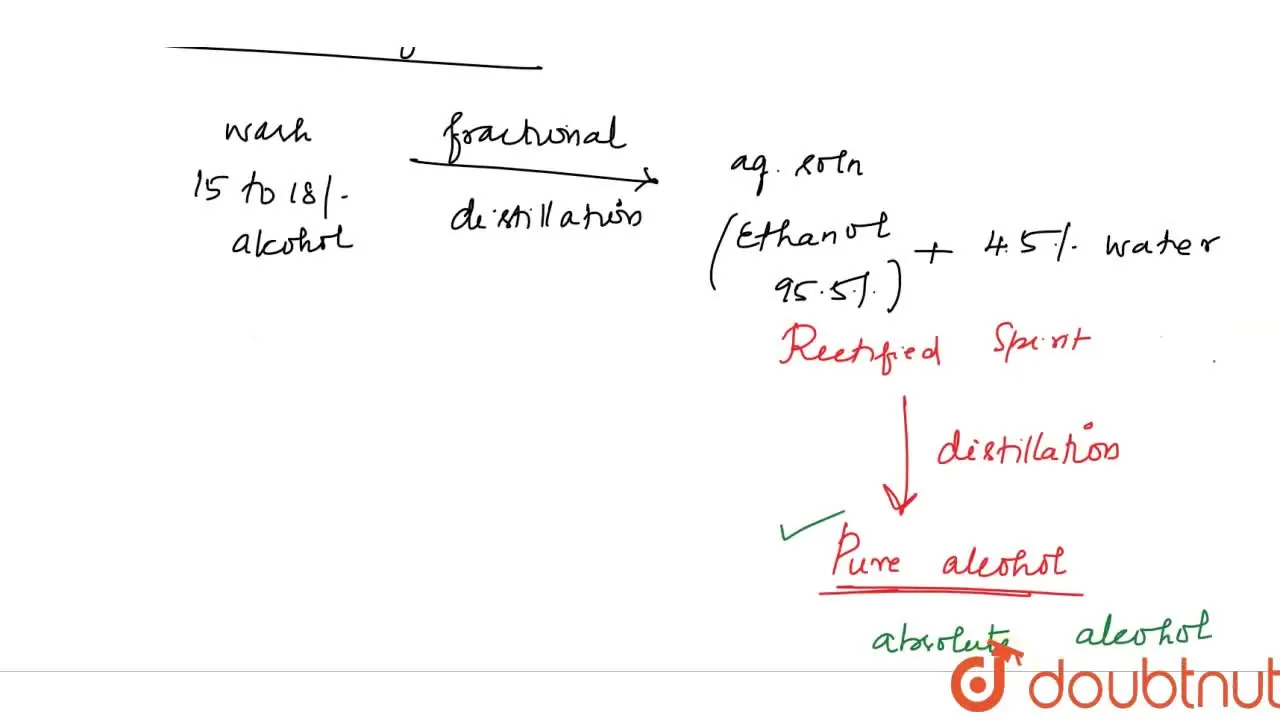 wash
15 to 18%
alcohol
fractional
distillation
aq. soln
(Ethanol
95.5%)
+ 4.5% water
Rectified Spirit
distillation
Pure alcohol
absolute alcohol
doubtnut